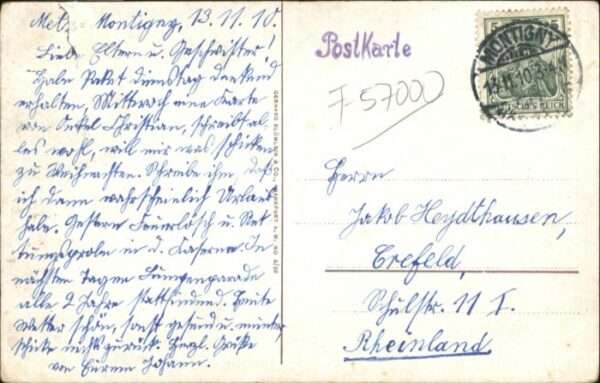 Metz-Montigny, 13.11.10.
Liebe Eltern u. Geschwister!
Habe Paket Dienstag dankend
erhalten, Mittwoch eine Karte
von Onkel Christian, schreibt al-
les wohl, will mir was schicken
zu Weihnachten. Schreibe ihm, daß
ich dann wahrscheinlich Urlaub
habe. Gestern Feuerlösch u. Ret-
tungsprobe in d. Kaserne. In
nächsten Tagen
alle 2 Jahre stattfindend. Heute
Wetter schön, sonst gesund u. munter,
schicke nichts zurück. Herzl. Grüße
von Eurem Johann.
Postkarte
F 57000
5 5
MONTIGNY
13.11.10.
DEUTSCHES REICH
Herrn
Jakob Heydthausen,
Crefeld,
Schulstr. 11 I.
Rheinland.